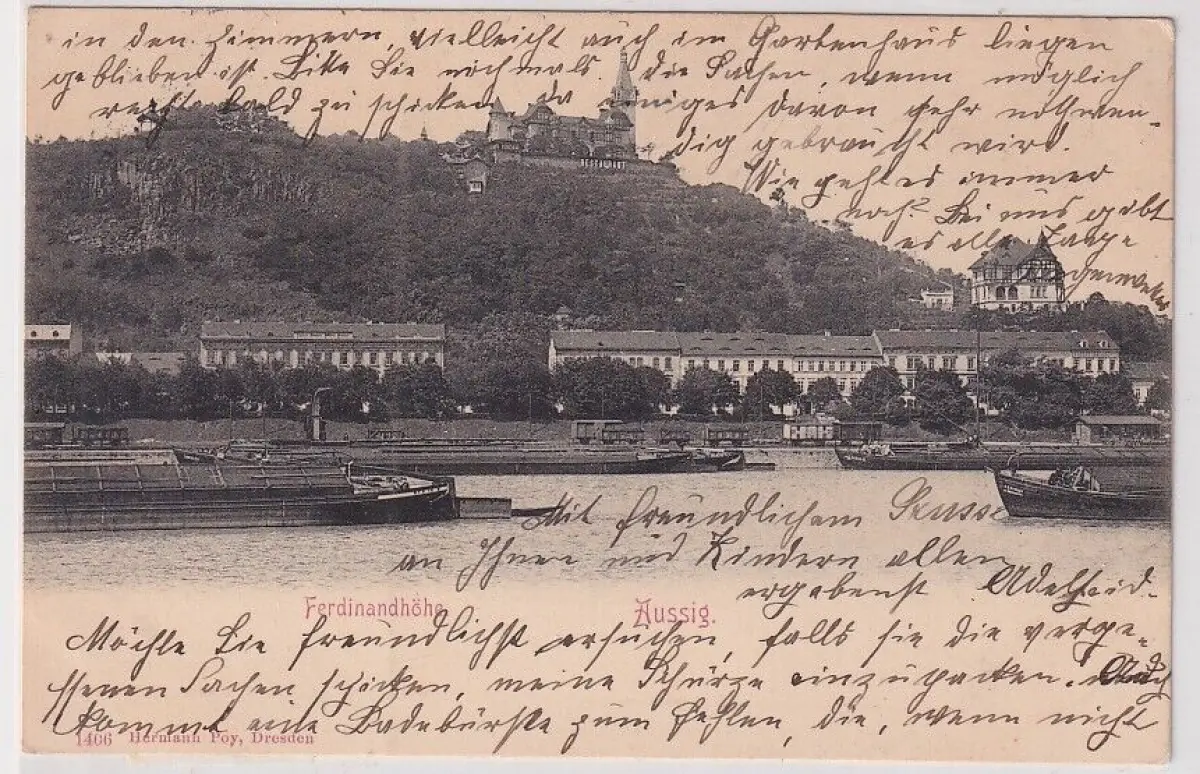 in den Zimmern, vielleicht auch im Gartenhaus liegen
geblieben ist. Bitte Sie nochmals die Sachen, wenn möglich
recht bald zu schicken, da einiges davon sehr nothwen-
dig gebraucht wird.
Wie geht es immer
noch? Bei uns gibt
es alle Tage
Regenwetter
RESTAURANT
Mit freundlichem Grusse
an Ihnen und Kindern allen
ergebenst Adelheid.
Ferdinandhöhe. Aussig.
Möchte Sie freundlichst ersuchen, falls sie die verge-
ssenen Sachen schicken, meine Schürze einzupacken. Auch
kommt eine Badebürste zum Fehlen, die, wenn nicht
1406 Hermann Poy, Dresden